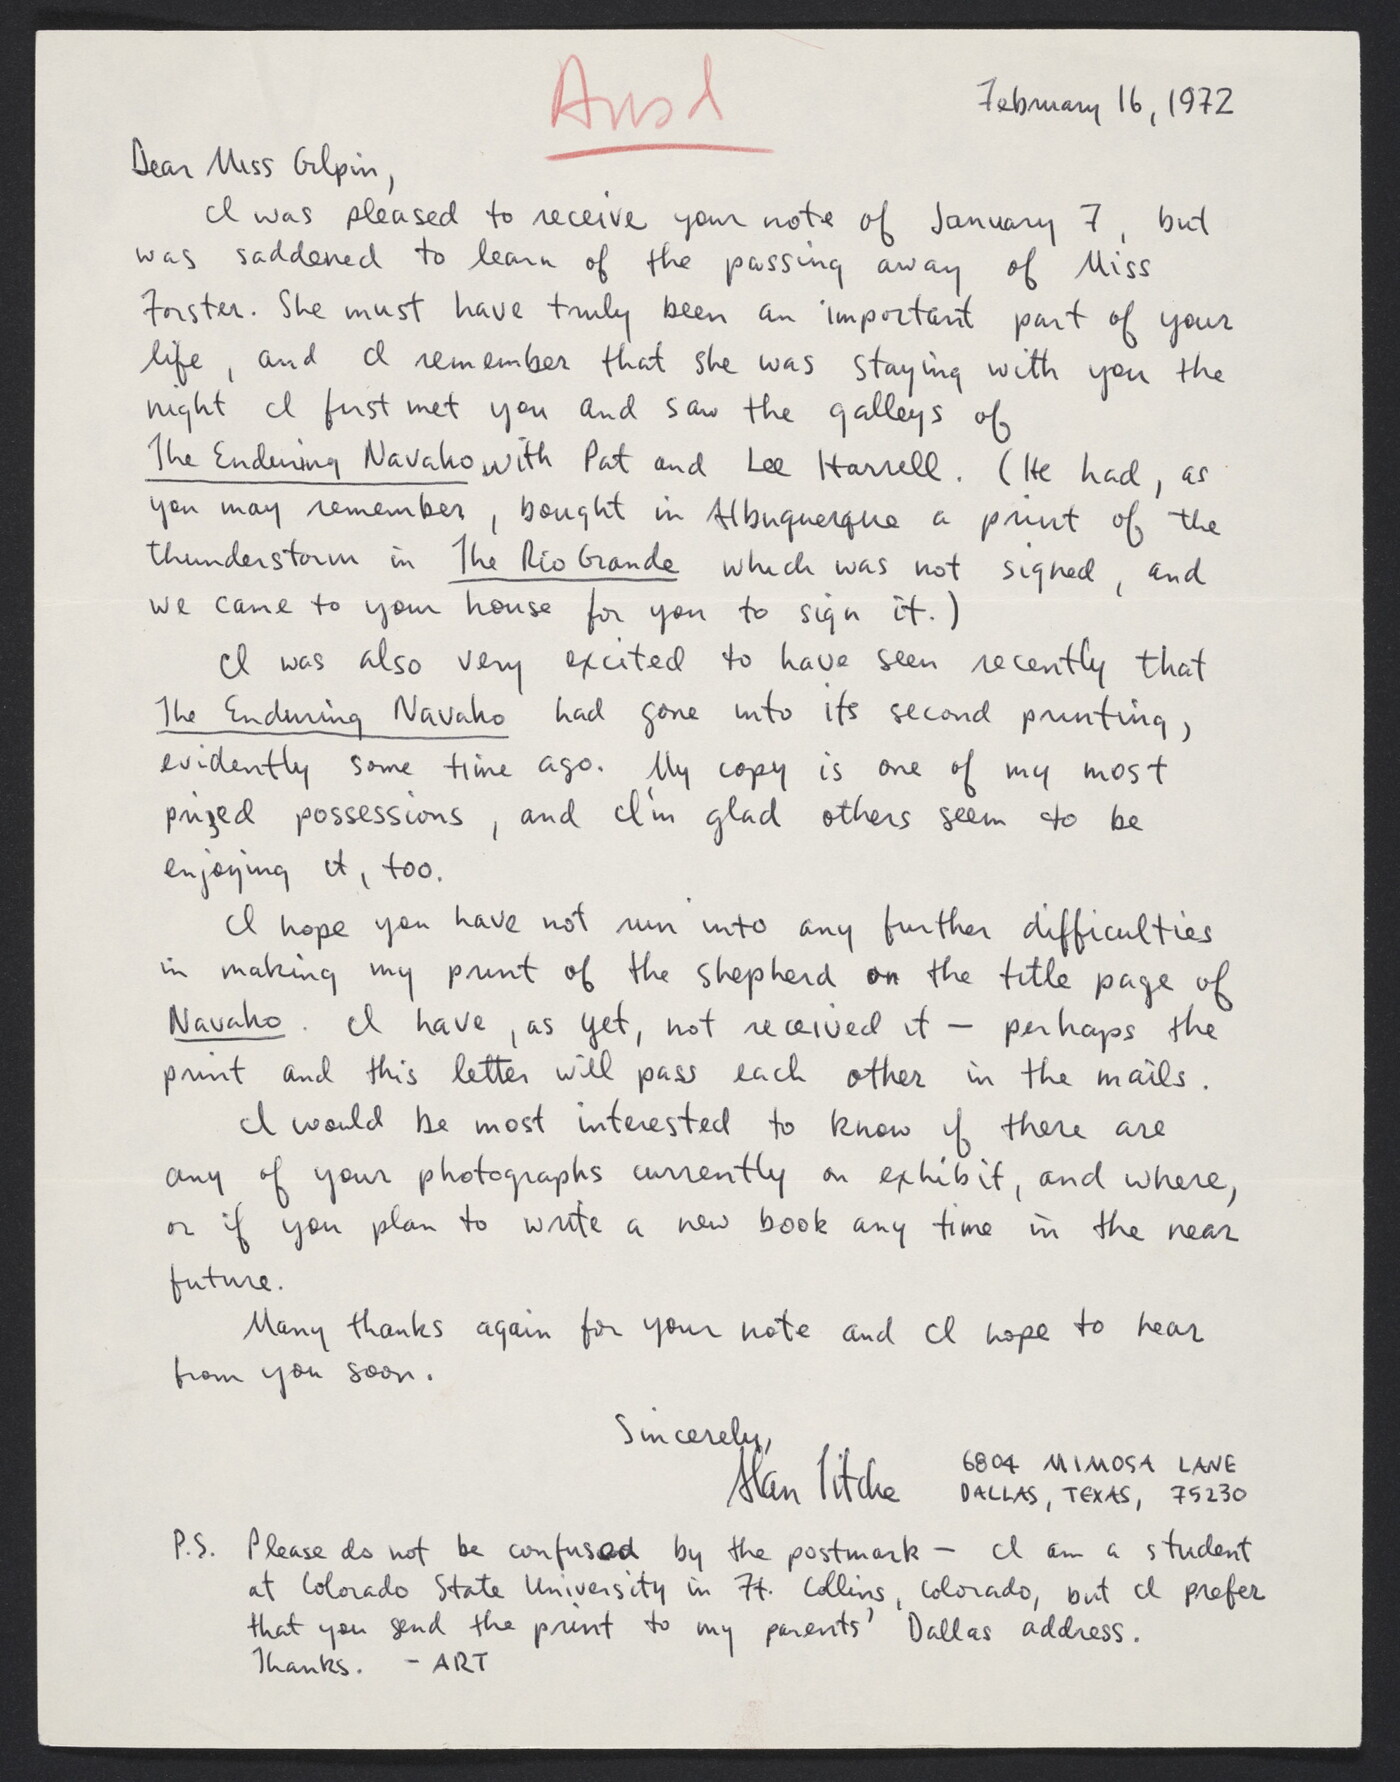 Ansd
February 16, 1972
Dear Miss Gilpin,
I was pleased to receive your note of January 7, but
was saddened to learn of the passing away of Miss
Forster. She must have truly been an important part of your
life, and I remember that she was staying with you the
night I first met you and saw the galleys of
The Enduring Navaho with Pat and Lee Harrell. (He had, as
you may remember, bought in Albuquerque a print of the
thunderstorm in The Rio Grande which was not signed, and
we came to your house for you to sign it.)
I was also very excited to have seen recently that
The Enduring Navaho had gone into its second printing,
evidently some time ago. My copy is one of my most
prized possessions, and I'm glad others seem to be
enjoying it, too.
I hope you have not run into any further difficulties
in making my print of the shepherd on the title page of
Navaho. I have, as yet, not received it — perhaps the
print and this letter will pass each other in the mails.
I would be most interested to know if there are
any of your photographs currently on exhibit, and where,
or if you plan to write a new book any time in the near
future.
Many thanks again for your note and I hope to hear
from you soon.
Sincerely,
Alan Titche
6804 MIMOSA LANE
DALLAS, TEXAS, 75230
P.S. Please do not be confused by the postmark — I am a student
at Colorado State University in Ft. Collins, Colorado, but I prefer
that you send the print to my parents' Dallas address.
Thanks. - ART